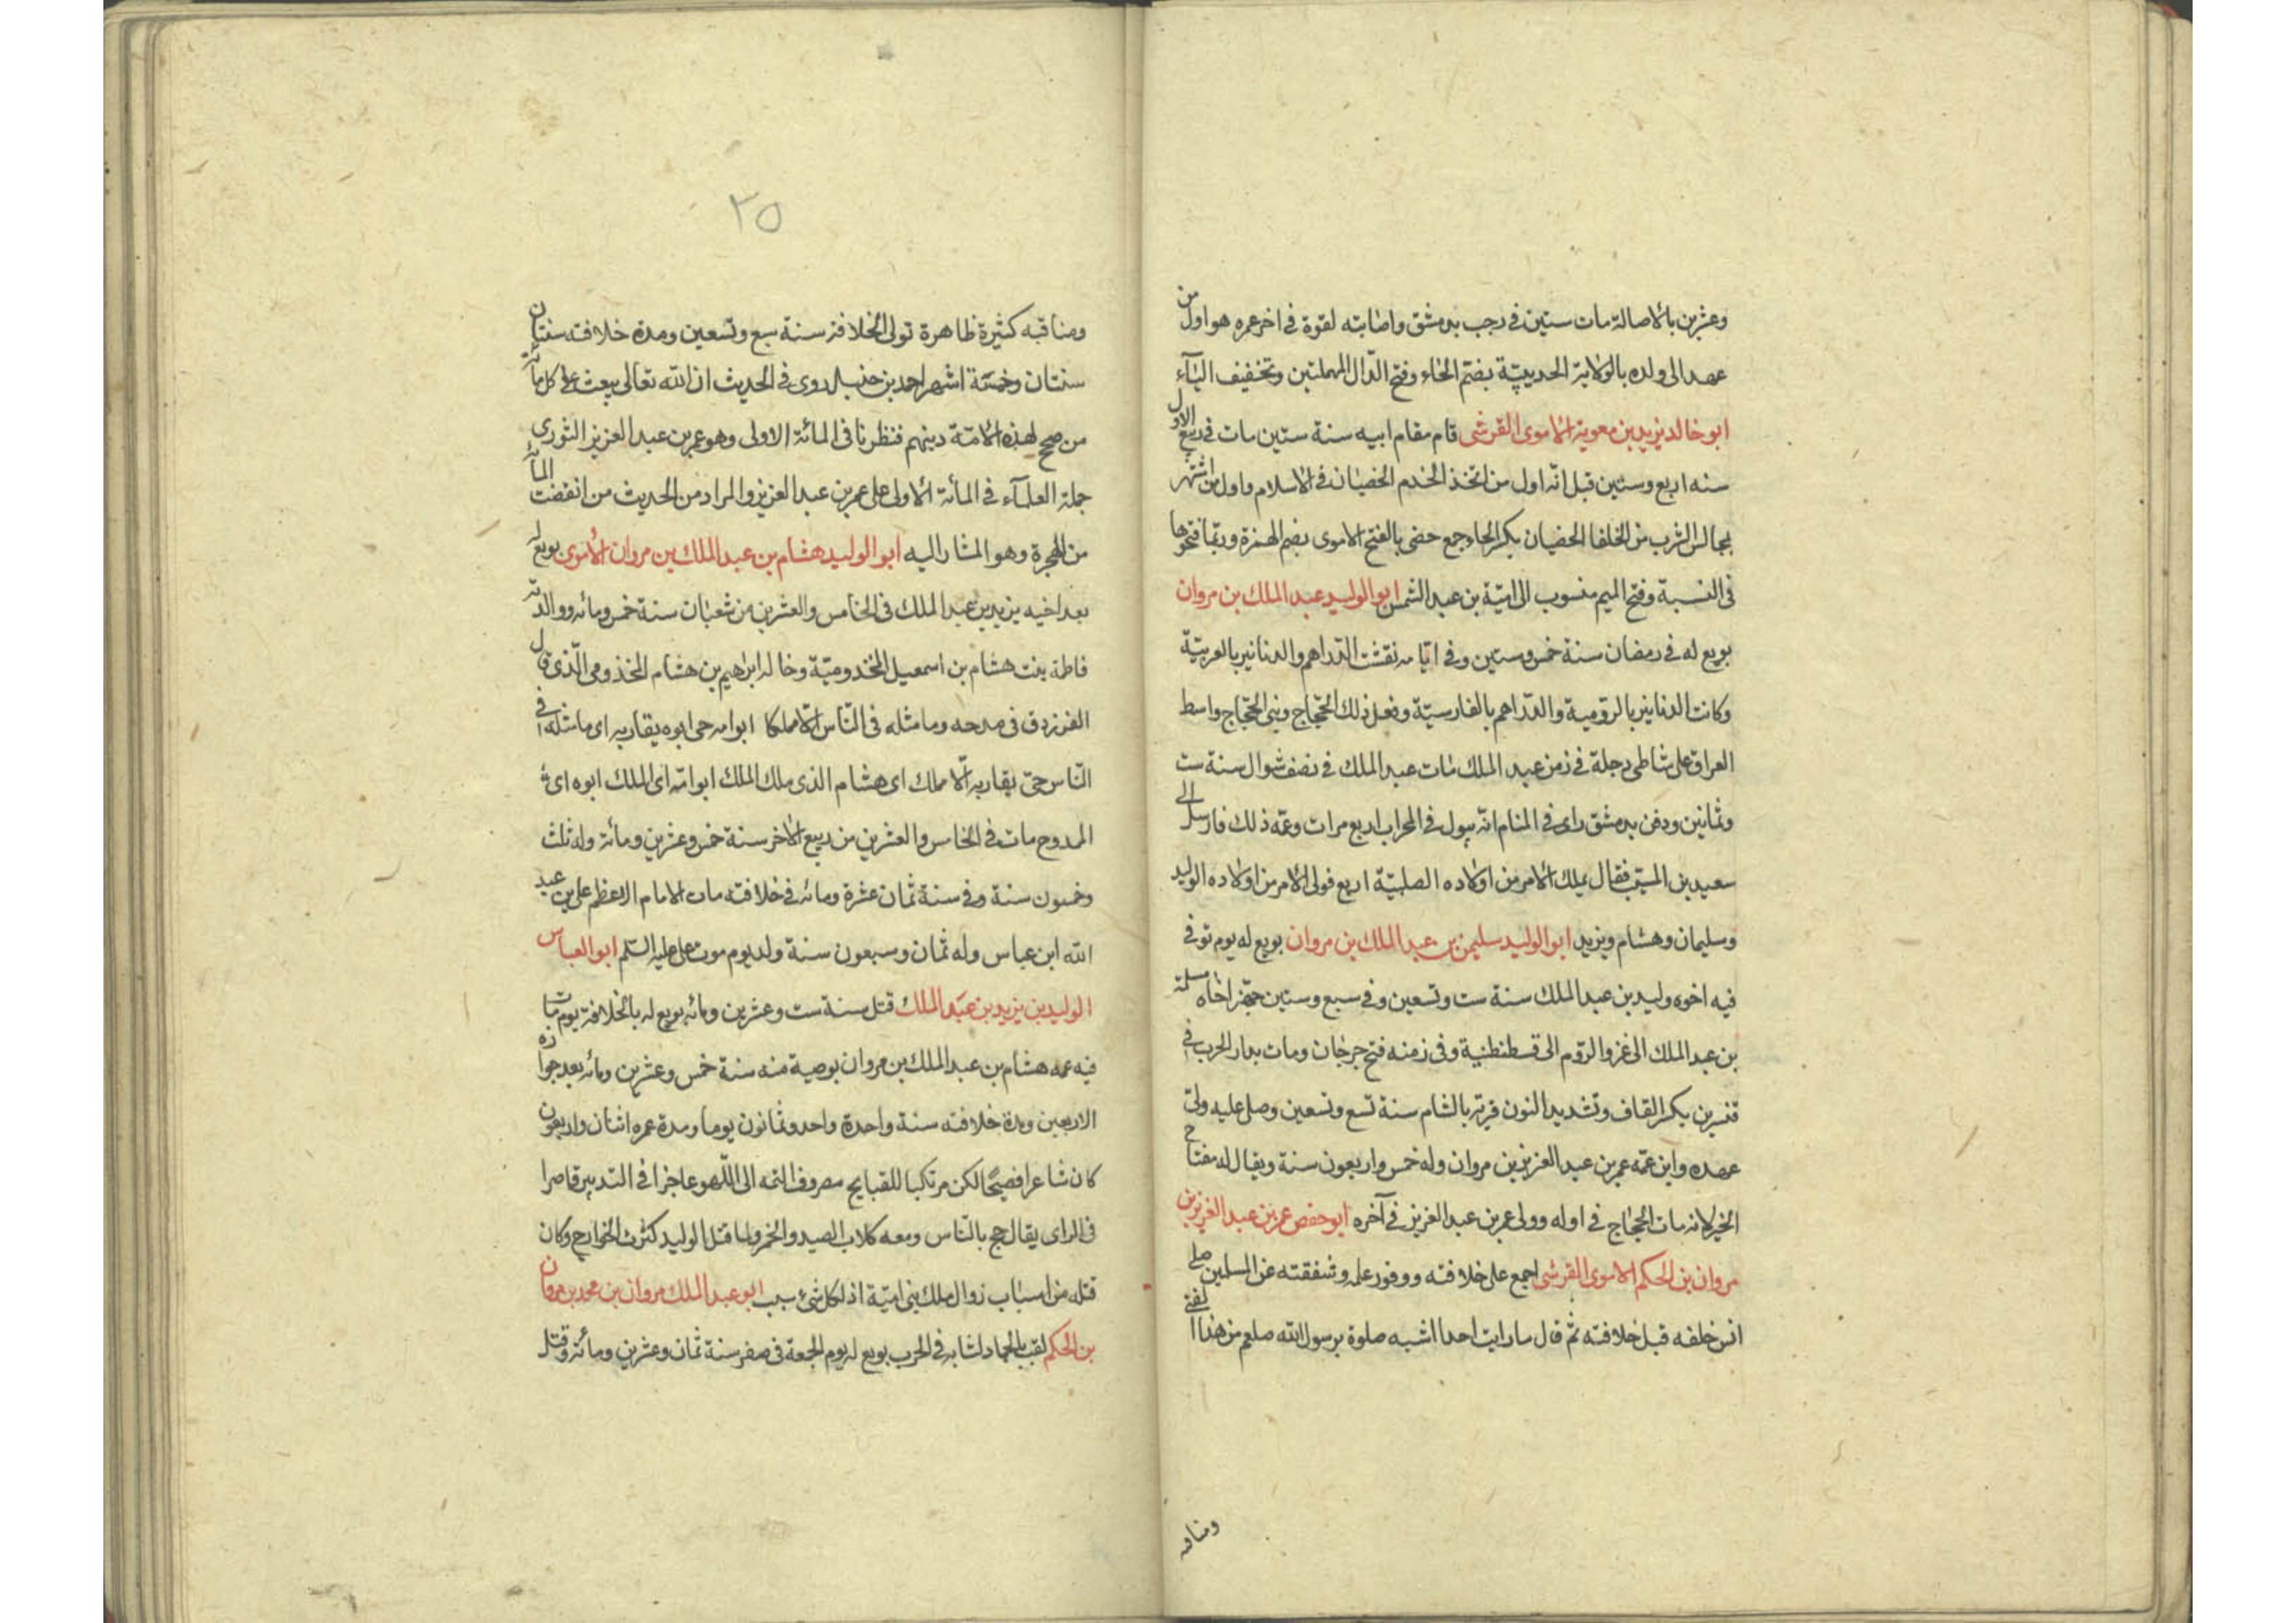 وعشرين بالاصالة مات ستين في رجب بدمشق واصابته لقوة في اخر عمره هو اول من
عهد الى ولده بالولاية الحديبية بضم الحاء وفتح الدال المهملتين وتخفيف الياء
ابو خالد يزيد بن معوية الاموى القرشى قام مقام ابيه سنة ستين مات في ربيع الاول
سنه اربع وستين قيل انه اول من اتخذ الخدم الخصيان في الاسلام واول من اشتهر
بمجالس الشرب من الخلفا الخصيان بكسر الخاء جمع خصى بالفتح الاموى بضم الهمزة وربما فتحوها
في النسبة وفتح الميم منسوب الى امية بن عبد الشمس ابو الوليد عبد الملك بن مروان
بويع له في رمضان سنة خمس وستين وفي ايامه نقشت الدراهم والدنانير بالعربية
وكانت الدنانير بالرومية والدراهم بالفارسية وفعل ذلك الحجاج وبنى الحجاج واسط
العراق على شاطى دجلة في زمن عبد الملك مات عبد الملك في نصف شوال سنة ست
وثمانين ودفن بدمشق راى في المنام انه يبول في المحراب اربع مرات وغمه ذلك فارسل الى
سعيد بن المسيب فقال يملك الامر من اولاده الصلبية اربع فولى الامر من اولاده الوليد
وسليمان وهشام ويزيد ابو الوليد سليمن بن عبد الملك بن مروان بويع له يوم توفى
فيه اخوه وليد بن عبد الملك سنة ست وتسعين وفي سبع وستين جهز اخاه مسلمة
بن عبد الملك الى غزو الروم الى قسطنطنية وفي زمنه فتح جرجان ومات بدار الحرب في
قنسرين بكسر القاف وتشديد النون قرية بالشام سنة تسع وتسعين وصلى عليه ولى
عهده وابن عمه عمر بن عبد العزيز بن مروان وله خمس واربعون سنة ويقال له مفتاح
الخير لانه مات الحجاج في اوله وولى عمر بن عبد العزيز في آخره ابو حفص عمر بن عبد العزيز بن
مروان بن الحكم الاموى القرشى اجمع على خلافته ووفور علمه وشفقته عن المسلمين صلى
انس خلفه قبل خلافته ثم قال ما رايت احدا اشبه صلوة برسول الله صلعم من هذا الفتى
ومناقبه
٢٥
ومناقبه كثيرة ظاهرة تولى الخلافة سنة سبع وتسعين ومدة خلافته سنتان
سنتان وخمسة اشهر احمد بن حنبل روى في الحديث ان الله تعالى يبعث على كل مائة
من صحح لهذه الامة دينهم فنظرنا في المائة الاولى وهو عمر بن عبد العزيز الثورى
جملة العلمآء في المائة الاولى على عمر بن عبد العزيز والمراد من الحديث من انقضت المائة
من الهجرة وهو المشار اليه ابو الوليد هشام بن عبد الملك بن مروان الأموى بويع له
بعد اخيه يزيد بن عبد الملك في الخامس والعشرين من شعبان سنة خمس ومائه ووالدته
فاطمة بنت هشام بن اسمعيل المخدومية وخاله ابراهيم بن هشام المخذومى الذى قال
الفرزدق في مدحه وما مثله في الناس الا مملكا ابو امه حى ابوه يقاربه اى ما مثله في
الناس حى يقاربه الا مملك اى هشام الذى ملك الملك ابو امه اى الملك ابوه اى
المدوح مات في الخامس والعشرين من ربيع الاخر سنة خمس وعشرين ومائة وله ثلث
وخمسون سنة وفي سنة ثمان عشرة ومائه في خلافته مات الامام الاعظم على بن عبد
الله ابن عباس وله ثمان وسبعون سنة ولد يوم موت على عليه السلم ابو العباس
الوليد بن يزيد بن عبد الملك قتل سنة ست وعشرين ومائه بويع له بالخلافة يوم مات
فيه عمه هشام بن عبد الملك بن مروان بوصية منه سنة خمس وعشرين ومائه بعد جوازه
الاربعين ومدة خلافته سنة واحدة واحد وثمانون يوما ومدة عمره اثنان واربعون
كان شاعرا فصيحا لكن مرتكبا للقبايح مصروف الهمه الى اللهو عاجزا في التدبير قاصرا
في الراى يقال حج بالناس ومعه كلاب الصيد والخمر ولما قتل الوليد كثرت الخوارج وكان
قتله من اسباب زوال ملك بنى امية اذ لكل شئ سبب ابو عبد الملك مروان بن محمد بن مروان
بن الحكم لقب بالحمار لثباته في الحرب بويع له يوم الجمعة في صفر سنة ثمان وعشرين ومائة وقتل